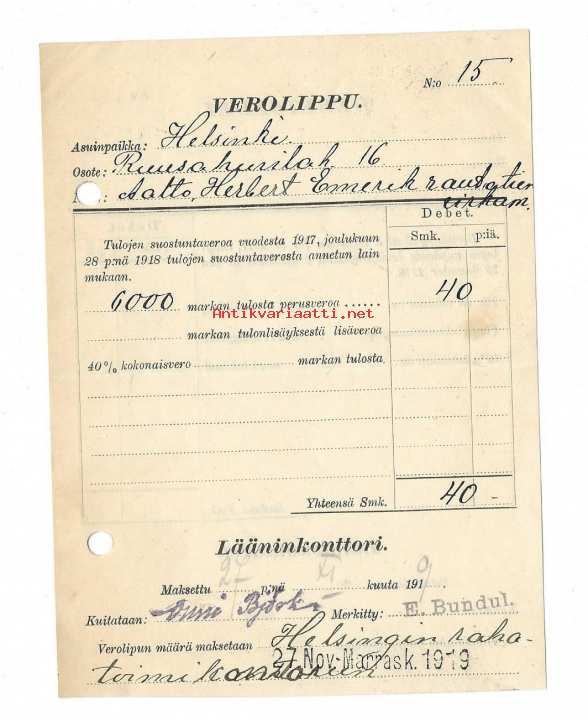 N:o 15
VEROLIPPU.
Asuinpaikka: Helsinki.
Osote: 16
Aalto, Herbert Emerik
Debet.
Smk. p:iä.
Tulojen suostuntaveroa vuodesta 1917, joulukuun
28 p:nä 1918 tulojen suostuntaverosta annetun lain
mukaan.
6000 markan tulosta perusveroa ...... 40
Antikvariaatti.net
markan tulonlisäyksestä lisäveroa
40% kokonaisvero markan tulosta
Yhteensä Smk. 40 -
Lääninkonttori.
Maksettu 27 p:nä XI kuuta 1919
Kuitataan: Merkitty: E. Bundul.
Verolipun määrä maksetaan Helsingin raha-
27 Nov. Marrask. 1919
toimikonttoriin